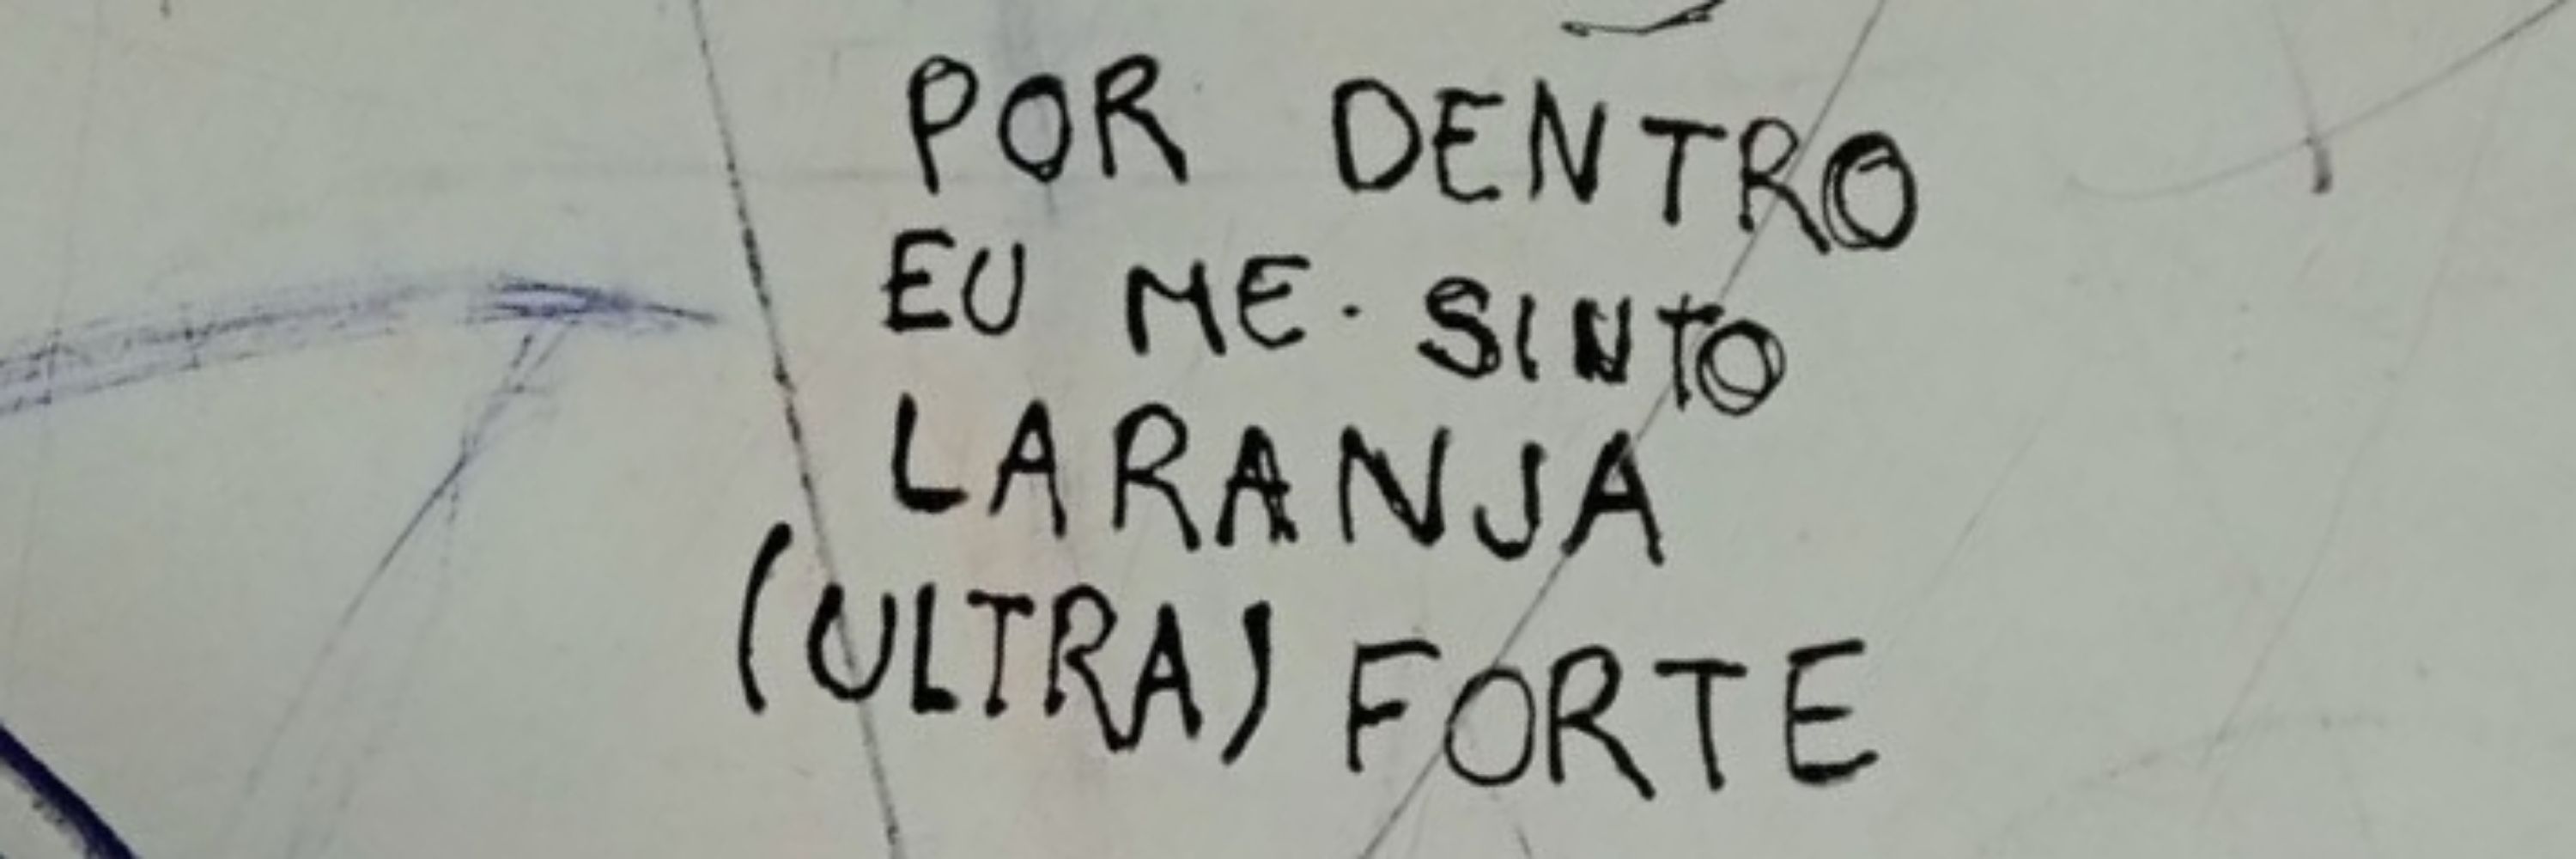 POR DENTRO
EU ME. SINTO
LARANJA
(ULTRA) FORTE